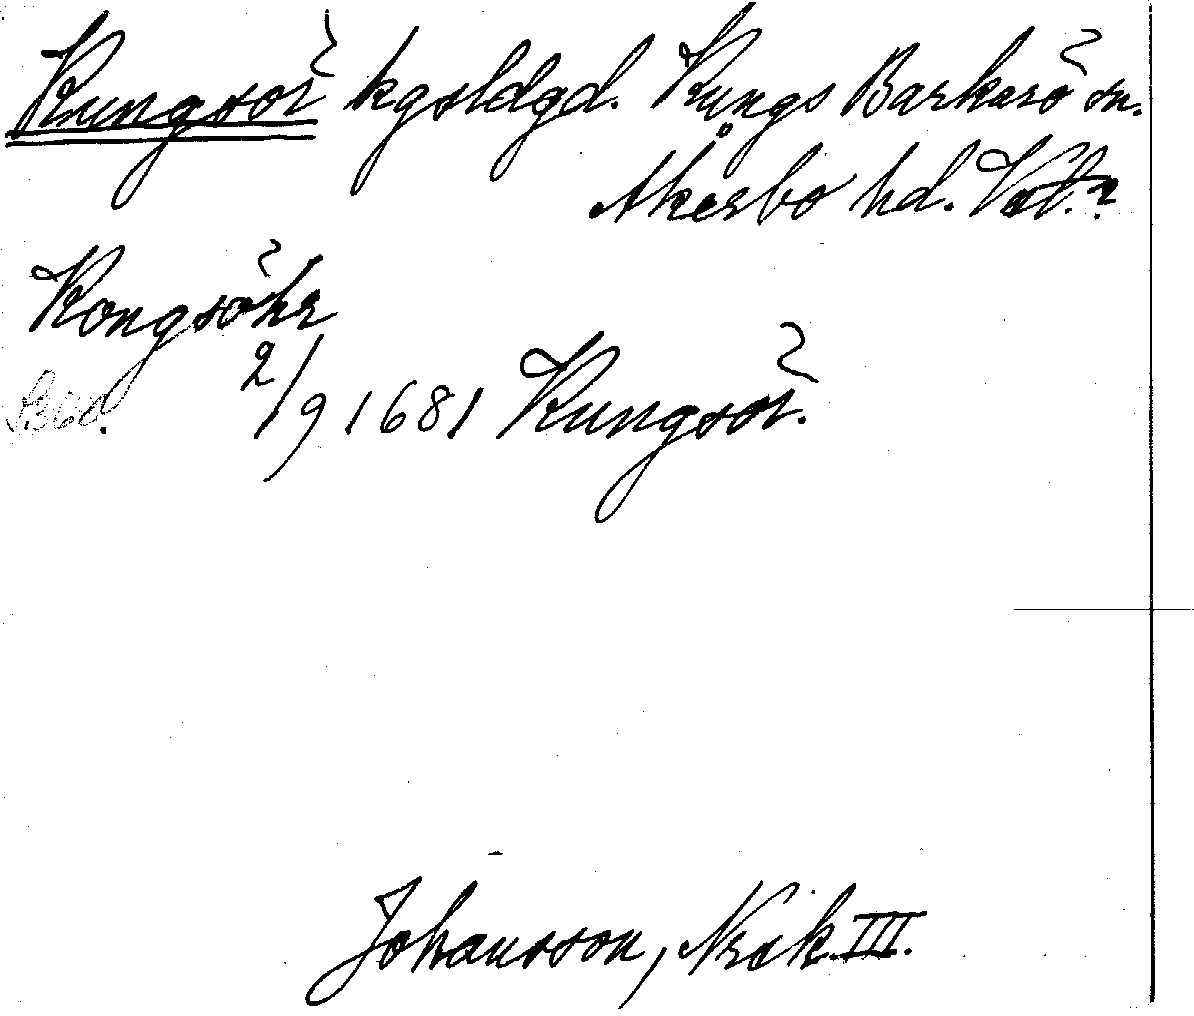 Kungsör kgsldgd. Kungs Barkarö sn.
Åkerbo hd. Vstm.?
Kongsöhr
2/9 1681 Kungsör.
Johansson, Noråk. III.